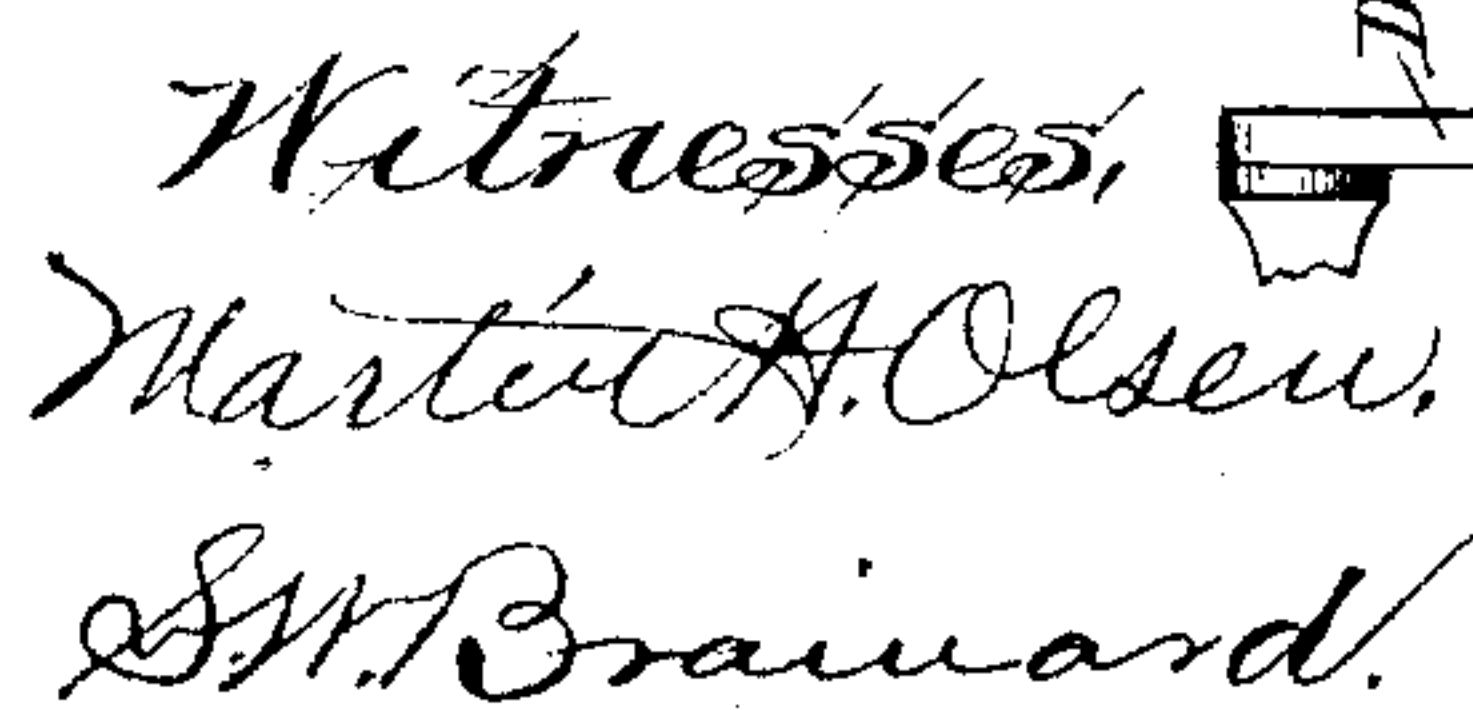 Witnesses,
Martin H. Olsen.
S. W. Brainard.